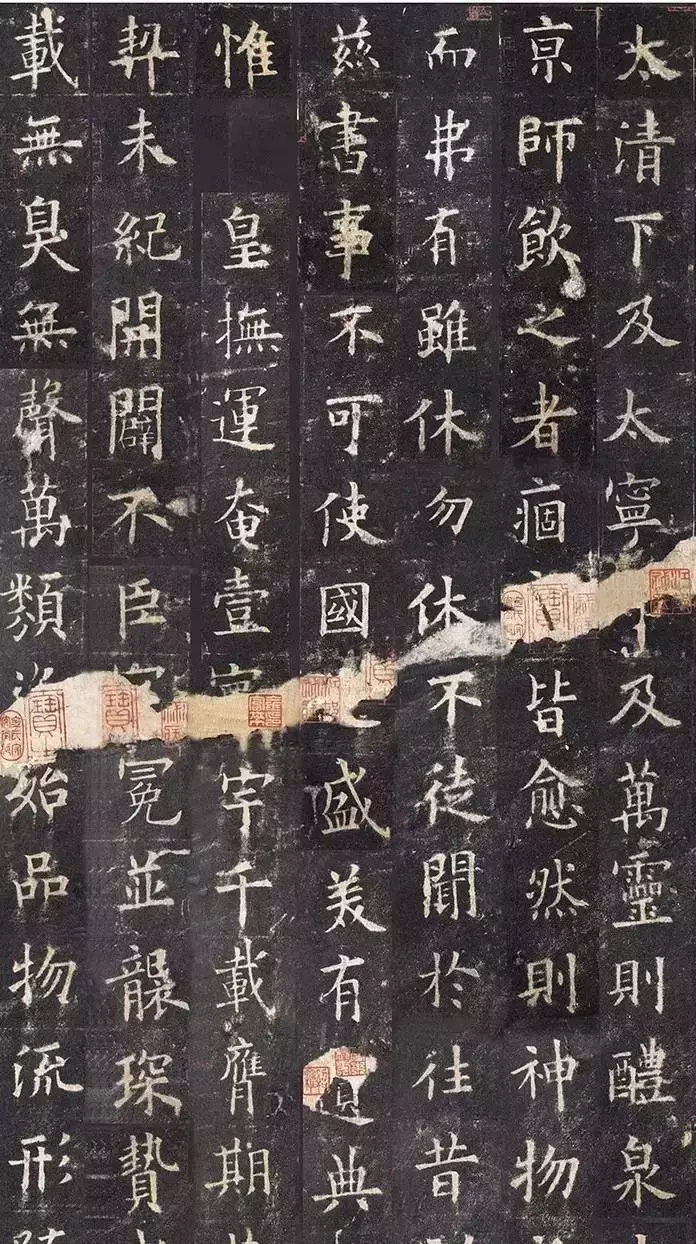 太清下及太寧及萬靈則醴泉
京師飲之者痼皆愈然則神物
而弗有雖休勿休不徒聞於往昔
茲書事不可使國盛美有典
皇撫運奄壹寰宇千載膺期
惟
契未紀開闢不臣冠冕並襲琛贄
載無臭無聲萬類始品物流形